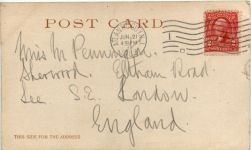 POST CARD
JUN 21
Miss M Pennington.
Sherwood. Eltham Road.
Lee S.E. London.
England.
THIS SIDE FOR THE ADDRESS